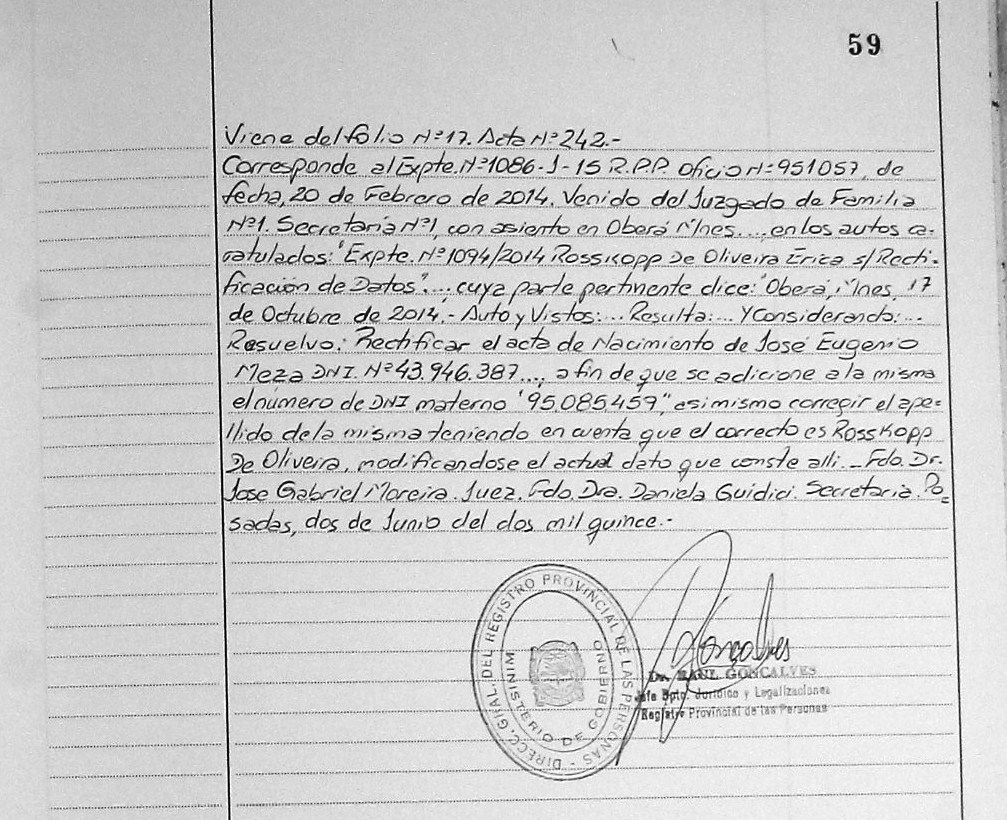 59
Viene del folio Nº17. Acta Nº242.-
Corresponde al Expte. Nº1086-J-15 R.P.P. Oficio Nº951057, de
fecha, 20 de Febrero de 2014. Venido del Juzgado de Familia
Nº1. Secretaría Nº1, con asiento en Oberá M'nes.... en los autos ca-
ratulados: "Expte. Nº1094/2014 Rosskopp De Oliveira Erica s/Recti-
ficación de Datos"...., cuya parte pertinente dice: "Oberá, M'nes, 17
de Octubre de 2014.- Auto y Vistos:... Resulta:... Y Considerando:...
Resuelvo: Rectificar el acta de Nacimiento de José Eugenio
Meza DNI. Nº43.946.387..., a fin de que se adicione a la misma
el número de DNI materno "95.085.459", asimismo corregir el ape-
llido de la misma teniendo en cuenta que el correcto es Rosskopp
De Oliveira, modificandose el actual dato que conste alli.- Fdo. Dr.
Jose Gabriel Moreira. Juez. Fdo. Dra. Daniela Guidici. Secretaria. Po=
sadas, dos de Junio del dos mil quince.-
DIRECC. GRAL. DEL REGISTRO PROVINCIAL DE LAS PERSONAS -
MINISTERIO DE GOBIERNO
Goncalves
Dr. RAUL GONCALVES
Jefe Dpto. Jurídico y Legalizaciones
Registro Provincial de las Personas